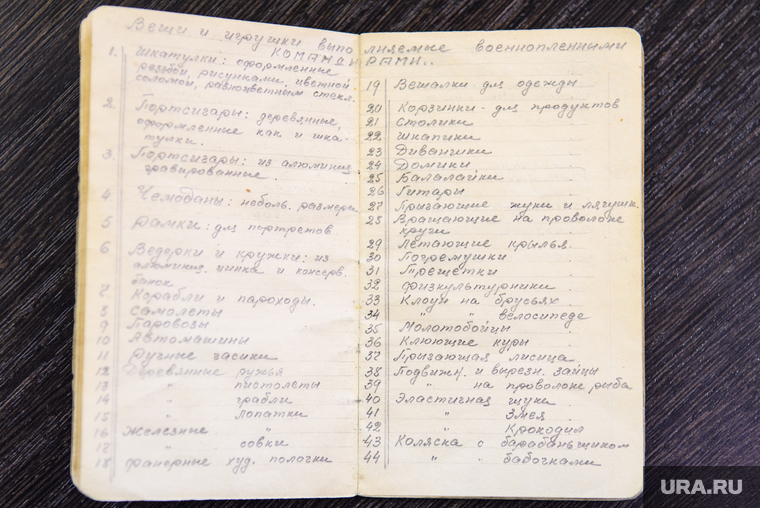 Вещи и игрушки выполняемые военнопленными
КОМАНДИРАМИ..
1. Шкатулки: оформленные
резьбой, рисунками, цветной
соломой, разноцветным стекл.
2. Портсигары: деревянные,
оформленные как и шка-
тулки.
3. Портсигары: из алюминия
гравированные.
4 Чемоданы: неболь. размеры
5 Рамки: для портретов
6 Ведерки и кружки: из
алюминия, цинка и консерв.
банок
7 Корабли и пароходы.
8 Самолеты
9 Паровозы
10 Автомашины
11 Ручные часики
12 Деревянные ружья
13 " пистолеты
14 " грабли
15 " лопатки
16 Железные "
17 " совки
18 Фанерные худ. полочки
19 Вешалки для одежды
20 Корзинки - для продуктов
21 Столики
22 Шкапики
23 Диванчики
24 Домики
25 Балалайки
26 Гитары
27 Прыгающие жуки и лягушк.
28 Вращающие на проволоке
круги
29 Летающие крылья.
30 Погремушки
31 Трещетки
32 Физкультурники
33 Клоун на брусьях
34 " " велосипеде
35 Молотобойцы
36 Клюющие куры
37 Прыгающая лисица
38 Подвижн. и вырезн. зайцы
39 " на проволоке рыба
40 Эластичная щука
41 " Змея
42 " Крокодил
43 Коляска с барабанщиком
44 " " бабочками
URA.RU